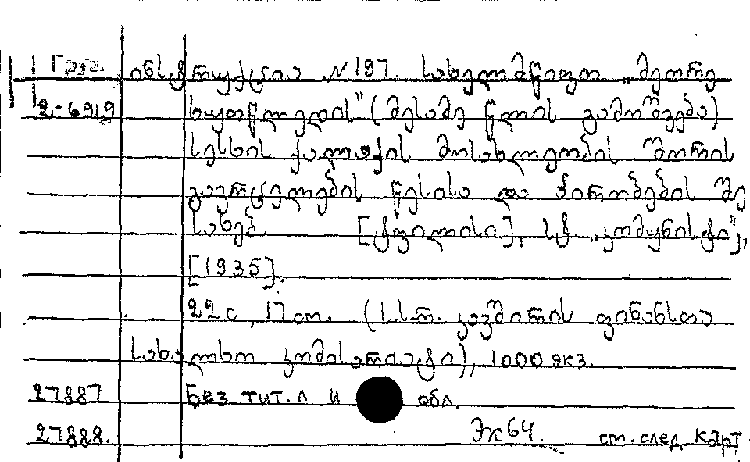 Груз. ინსტრუქცია №197. სახელმწიფო „მეორე
2-6919 ხუთწლედის" (მესამე წლის გამოშვება)
სესხის ქალაქის მოსახლეობის შორის
გავრცელების წესისა და პირობების შე
სახებ [ტფილისი], სტ. „კომუნისტი",
[1935].
22 с, 17 см. (სსრ. კავშირის ფინანსთა
სახალხო კომისარიატი), 1000 экз.
27887 Без тит. л и обл.
27888. Эк 64. см. след. карт.